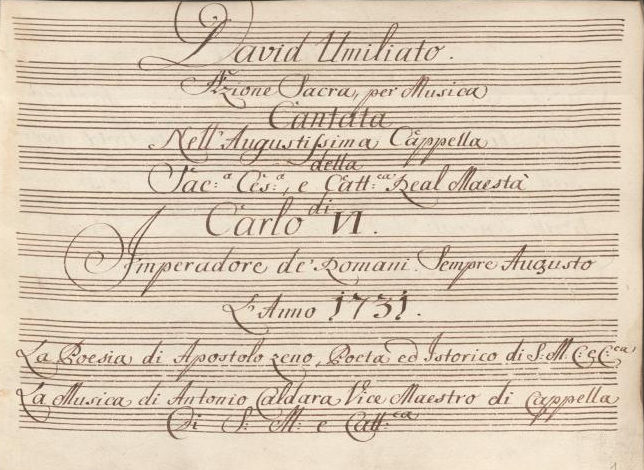 David Umiliato.
Azione Sacra, per Musica
Cantata
Nell'Augustissima Cappella
della
Sac:ª Ces:ª, e Catt:ca Real Maestà
di
Carlo VI.
Imperadore de' Romani. Sempre Augusto
L'Anno 1731.
La Poesia di Apostolo Zeno, Poeta ed Istorico di S: M: C: e C:ca
La Musica di Antonio Caldara Vice Maestro di Cappella
Di S: M: e Catt:ca